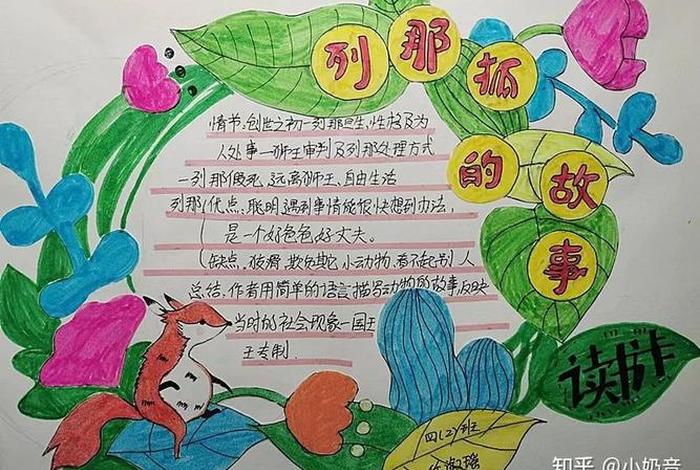 列那狐
的故事
情节:创世之初—列那诞生、性格及为
人处事—狮王审判及列那处理方式
—列那假死,远离狮王,自由生活
列那 优点:聪明,遇到事情能很快想到办法,
是一个好爸爸好丈夫。
缺点:狡猾,欺负其它小动物,看不起别人
总结:作者用简单的语言描写动物的故事反映
当时的社会现象—国王
王专制.
读书卡
四(2)班
知乎 @小奶音